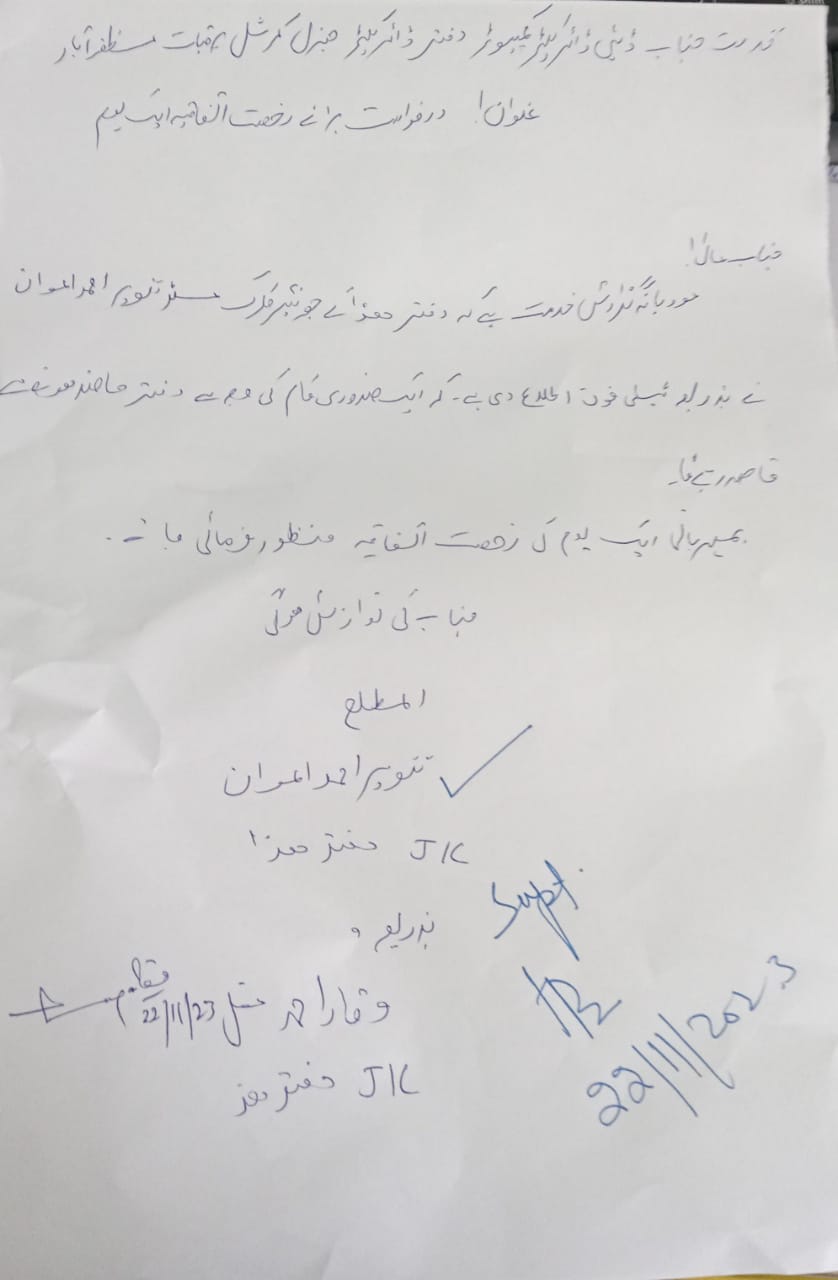 خدمت جناب ڈپٹی ڈائریکٹر کمپیوٹر دفتر ڈائریکٹر جنرل کمرشل برقیات مظفرآباد
عنوان! درخواست برائے رخصت اتفاقیہ ایک یوم
جناب عالی!
مودبانہ گزارش خدمت ہے کہ دفتر ھذا کے جونیئر کلرک مسٹر تنویر احمد اعوان
نے بذریعہ ٹیلی فون اطلاع دی ہے۔ کہ ایک ضروری کام کی وجہ سے دفتر حاضر ہونے سے
قاصر رہے گا۔
بمہربانی ایک یوم کی رخصت اتفاقیہ منظور فرمائی جائے۔
جناب کی نوازش ہوگی
المطلع
تنویر احمد اعوان
J/C دفتر ھذا
بذریعہ
وقار احمد مغل 22/11/23
J/C دفتر ھذ
Supt.
22/11/2023